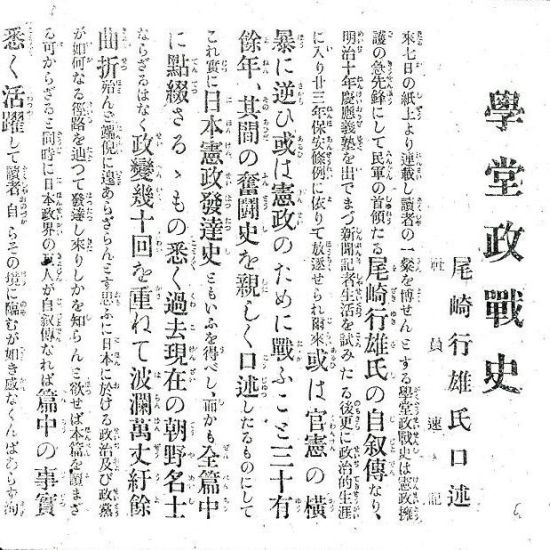 學堂政戰史
尾崎行雄氏口述
社員速記
來七日の紙上より連載し讀者の一粲を博せんとする學堂政戰史は憲政擁
護の急先鋒にして民軍の首領たる尾崎行雄氏の自叙傳なり、
明治十年慶應義塾を出でまづ新聞記者生活を試みたる後更に政治的生涯
に入り廿三年保安條例に依りて放逐せられ爾來或は官憲の橫
暴に逆ひ或は憲政のために戰ふこと三十有
餘年、其間の奮鬪史を親しく口述したるものにして
これ實に日本憲政發達史ともいふを得べし、而かも全篇中
に點綴さるゝもの悉く過去現在の朝野名士
ならざるはなく政變幾十回を重ねて波瀾萬丈紆餘
曲折殆んど端倪に遑あらざらんとす思ふに日本に於ける政治及び政黨
が如何なる徑路を辿つて發達し來りしかを知らんと欲せば本篇を讀まざ
る可からざると同時に日本政界の人が自叙傳なれば篇中の事實
悉く活躍して讀者自らその境に臨むが如き感なくんばあらず